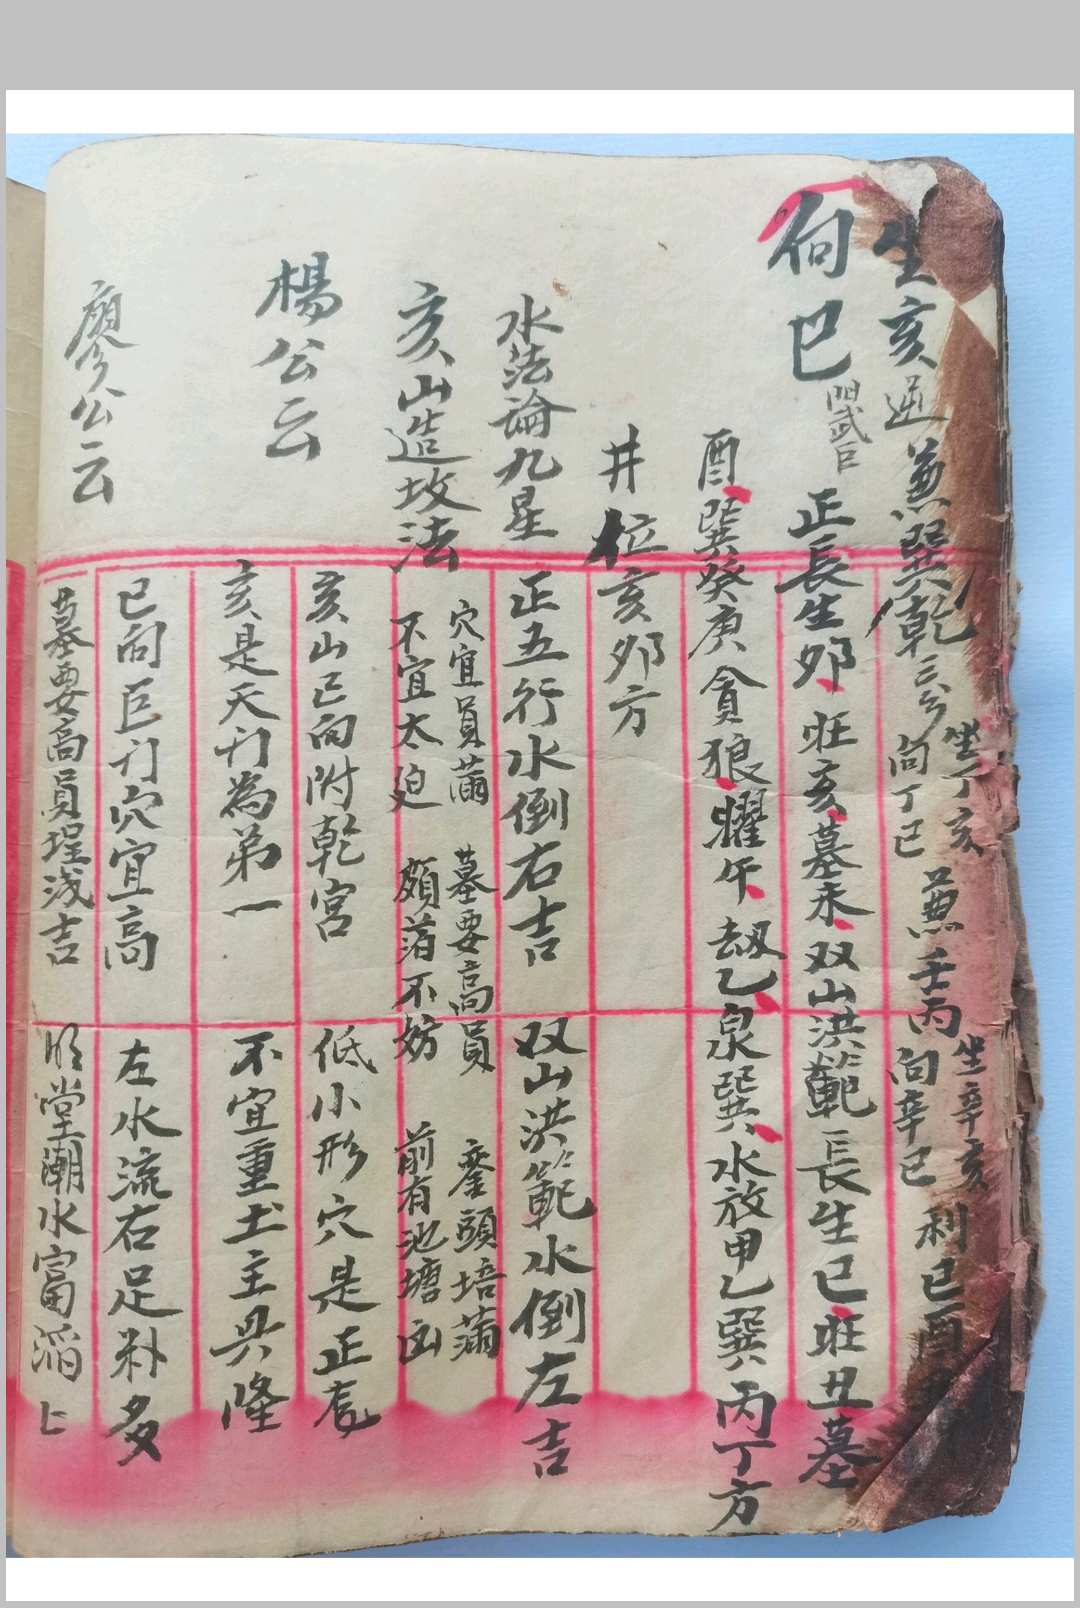 坐亥
兼巽乾三分
坐丁亥
向丁巳
兼壬丙
坐辛亥
向辛巳
利巳酉
向巳
武巨
正長生夘旺亥墓未双山洪範長生巳旺丑墓
酉巽癸庚貪狼耀午劫乙泉巽水放甲乙巽丙丁方
井位亥夘方
水法論九星
正五行水倒右吉
双山洪範水倒左吉
亥山造坟法
穴宜員
墓要高員
頭培
不宜太
不妨
前有池塘凶
楊公云
亥山巳向附乾宮
低小形穴是正
亥是天為弟一
不宜重土主興隆
廖公云
巳向巨穴宜高
左水流右足多
墓要高員浅吉
明堂潮水富